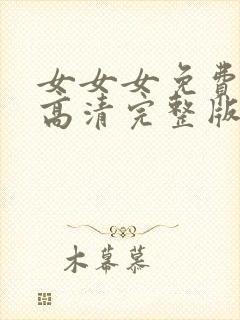 女女女免费
高清完整版
木幕慕